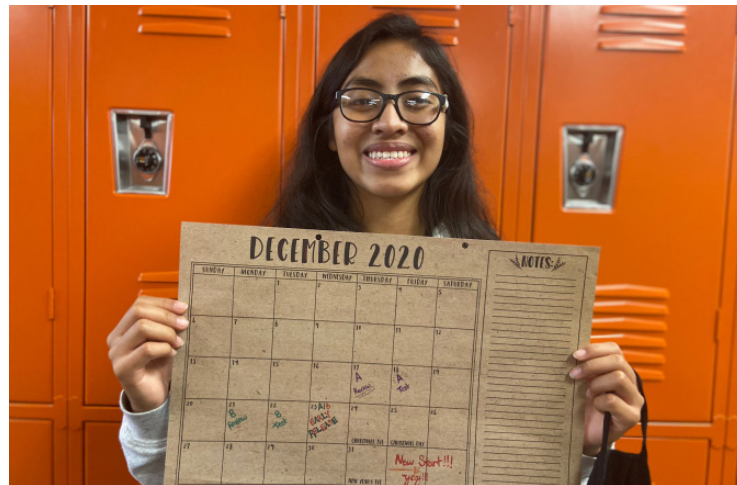 DECEMBER 2020
NOTES:
SUNDAY MONDAY TUESDAY WEDNESDAY THURSDAY FRIDAY SATURDAY
1 2 3 4 5
6 7 8 9 10 11 12
13 14 15 16 17 18 19
A A
Review Test
20 21 22 23 24 25 26
B B A/B
Review Test EARLY
RELEASE
CHRISTMAS EVE CHRISTMAS DAY
27 28 29 30 31
New Start!!!
yay!!
NEW YEAR'S EVE